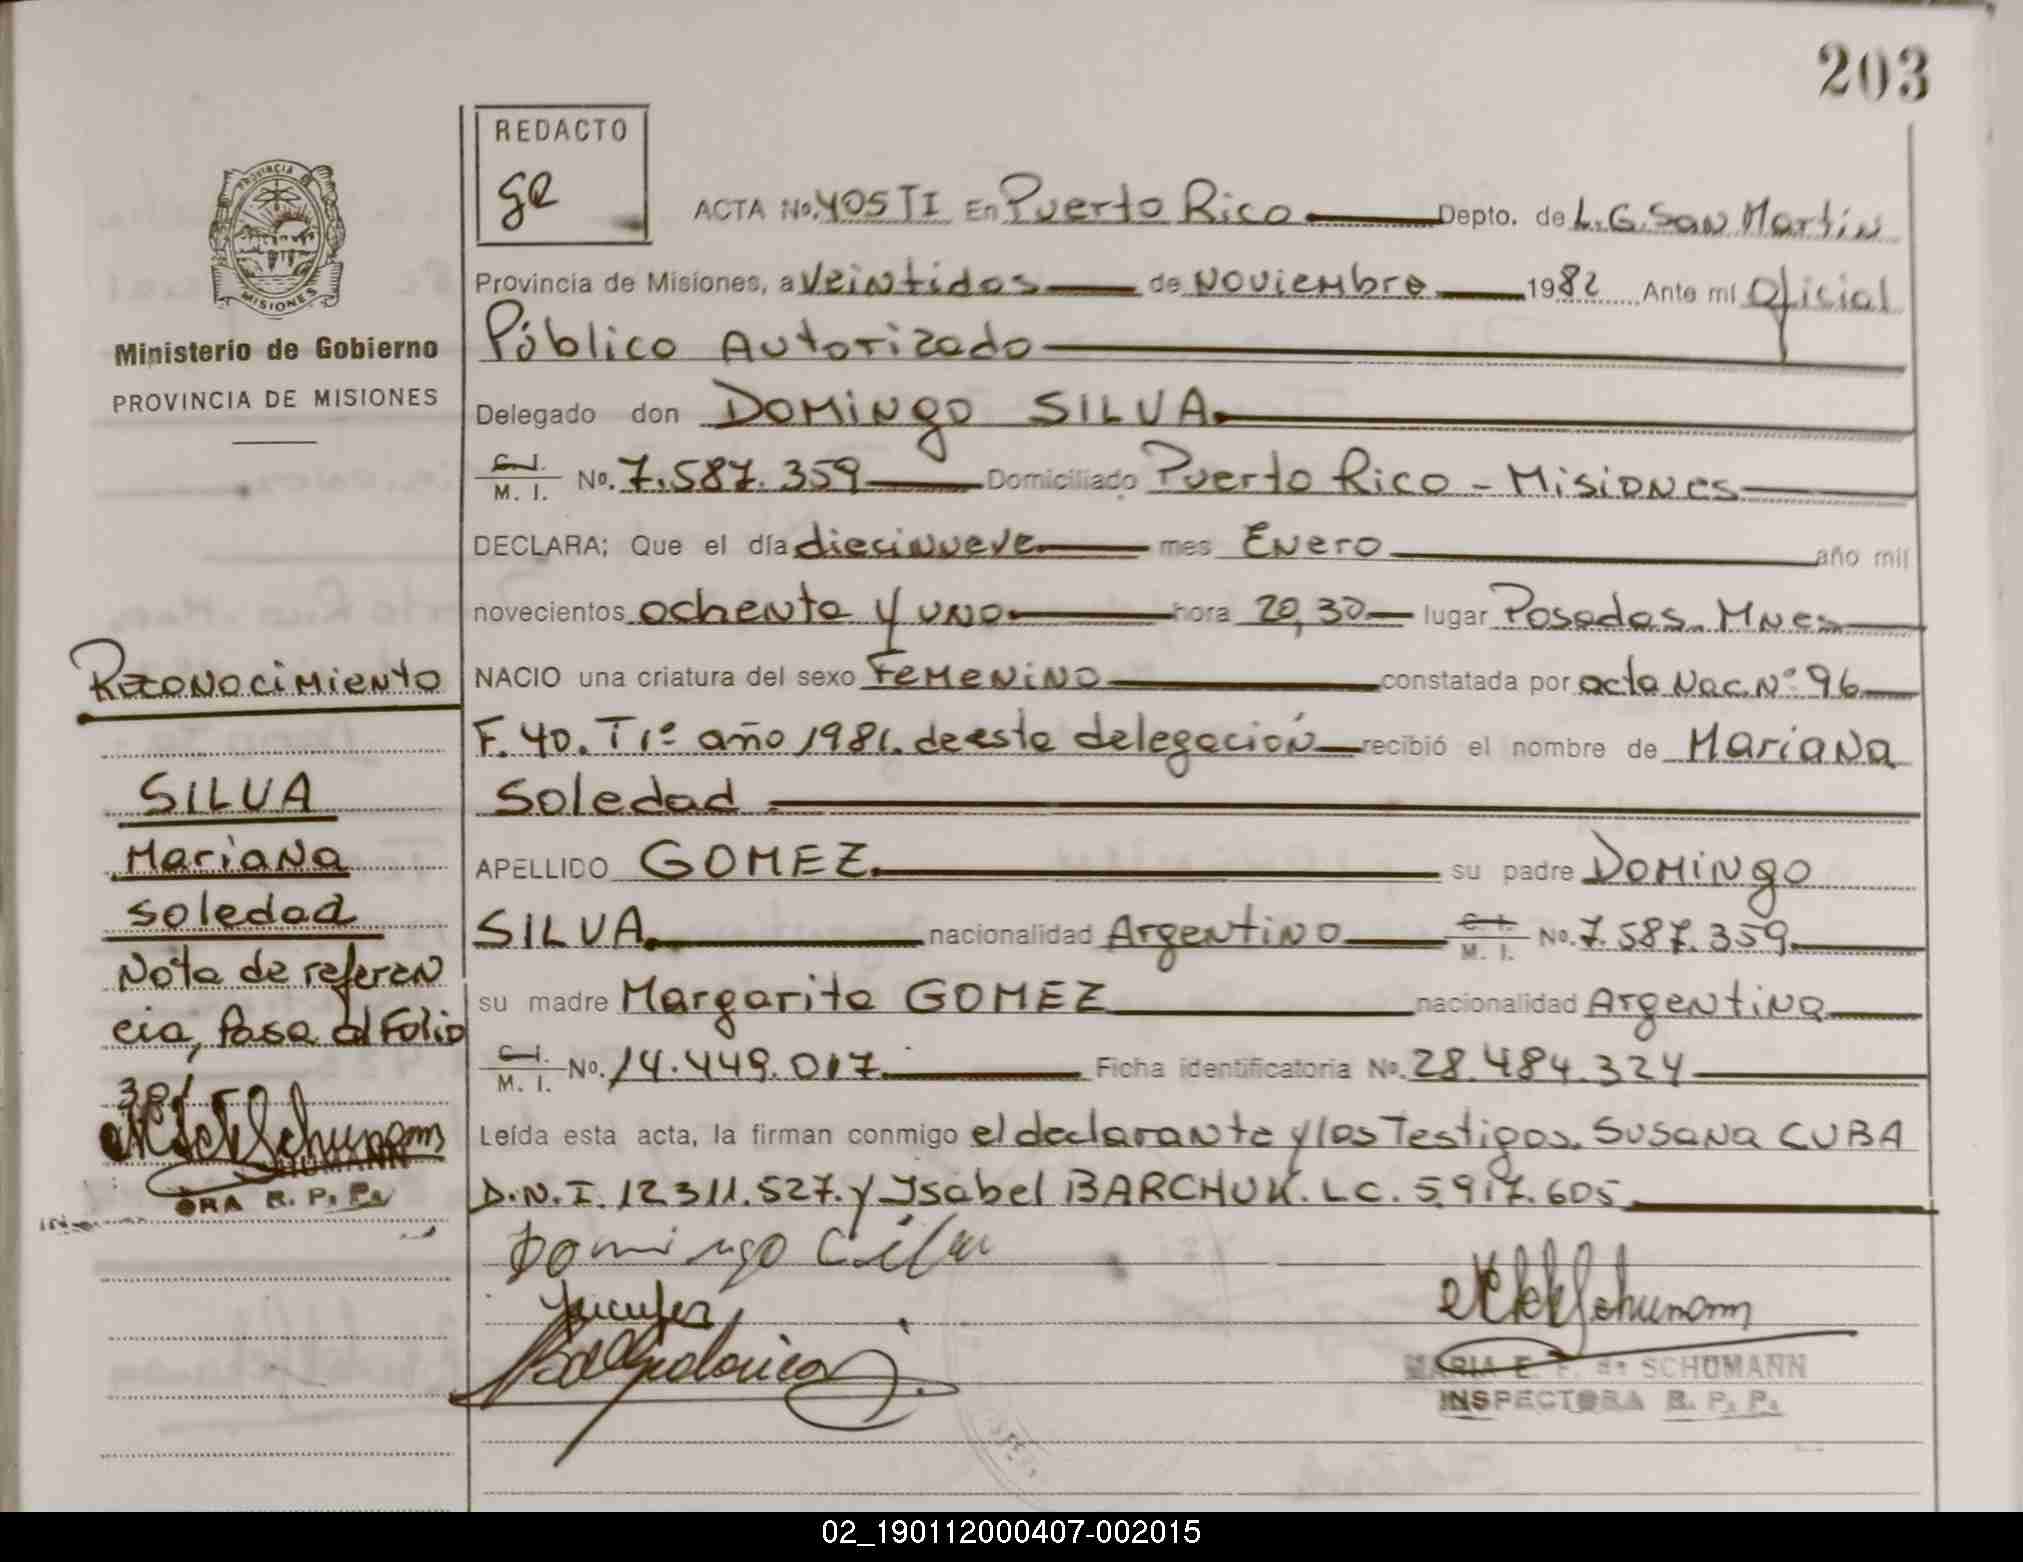 203
REDACTO
ge
PROVINCIA
MISIONES
Ministerio de Gobierno
PROVINCIA DE MISIONES
ACTA No. 405 TI En Puerto Rico Depto. de L.G. San Martín
Provincia de Misiones, a veintidos de Noviembre 1982 Ante mí Oficial
Público Autorizado
Delegado don DOMINGO SILVA
C.I. M. I. No. 7.587.359 Domiciliado Puerto Rico - Misiones
DECLARA; Que el día diecinueve mes Enero año mil
novecientos ochenta y uno hora 20,30 lugar Posadas. Mnes
NACIO una criatura del sexo Femenino constatada por acta Nac. Nº 96
F. 40. T 1º año 1981. de esta delegación recibió el nombre de Mariana
Soledad
APELLIDO GOMEZ su padre DOMINGO
SILVA nacionalidad Argentino C. I. M. I. No. 7.587.359
su madre Margarita GOMEZ nacionalidad Argentina
C.I. M. I. No. 14.449.017 Ficha identificatoria No. 28.484.324
Leída esta acta, la firman conmigo el declarante y los Testigos. Susana CUBA
D.N.I. 12.311.527. y Isabel BARCHUK. L.C. 5.917.605
Domingo Cilva
MARIA E. F. de SCHUMANN
INSPECTORA R. P. P.
Reconocimiento
SILVA
Mariana
Soledad
Nota de referen
cia, Pasa al Folio
SCHUMANN
ORA R. P. P.
02_190112000407-002015